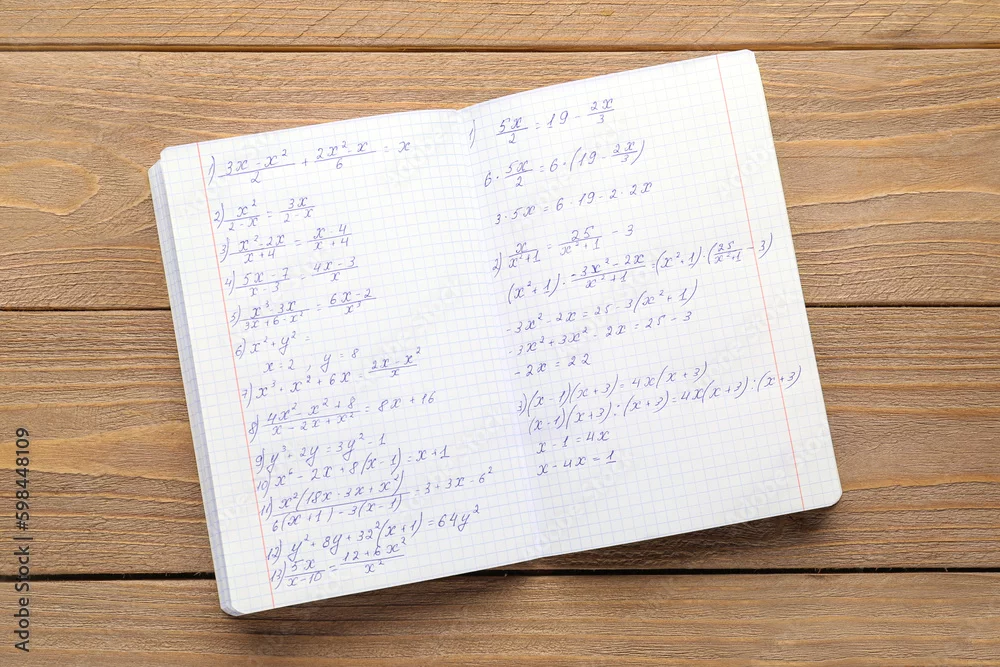 1) (3x - x²)/2 + (2x² - x)/6 = x
2) x²/(2-x) = 3x/(2-x)
3) (x² - 2x)/(x+4) = (x-4)/(x+4)
4) (5x - 7)/(x-3) = (4x-3)/x
5) (x³ 3x)/(3x+6-x²) = (6x-2)/x³
6) x² + y² =
x = 2, y = 8
7) x³ + x² + 6x = (2x - x²)/x
8) (4x² - x² + 8)/(x - 2x + x²) = 8x + 16
9) y³ + 2y = 3y² - 1
10) x⁶ - 2x + 8(x-1) = x + 1
11) x²(18x - 3x + x²)/(6(x+1) - 3(x-1)) = 3 + 3x - 6²
12) y² + 8y + 32²(x+1) = 64y²
13) 5x/(x-10) = (12+6x²)/x²
1) 5x/2 = 19 - 2x/3
6 · 5x/2 = 6 · (19 - 2x/3)
3 · 5x = 6 · 19 - 2 · 2x
2) x/(x²+1) = 25/(x²+1) - 3
(x²+1) · (-3x² - 2x)/(x²+1) = (x²+1) · (25/(x²+1) - 3)
-3x² - 2x = 25 - 3(x²+1)
-3x² + 3x² - 2x = 25 - 3
-2x = 22
3) (x-1)(x+3) = 4x(x+3)
(x-1)(x+3) : (x+3) = 4x(x+3) : (x+3)
x - 1 = 4x
x - 4x = 1
Adobe Stock | #598448109